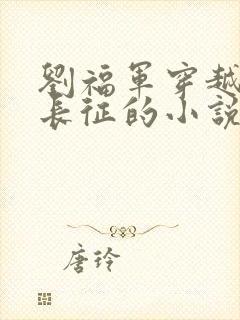 劉福軍穿越
長征的小說
唐玲